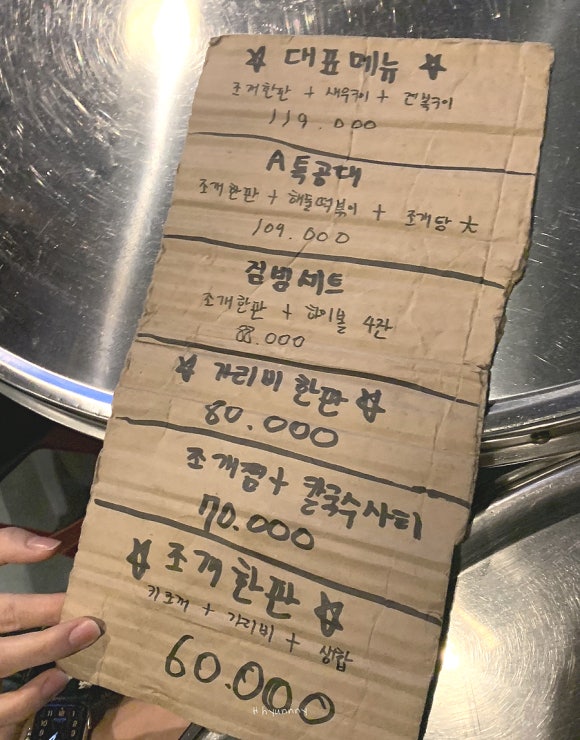 ☆ 대표메뉴 ☆
조개한판 + 새우구이 + 전복구이
119.000
A특공대
조개한판 + 해물떡볶이 + 조개탕 大
109.000
점빵세트
조개한판 + 하이볼 4잔
88.000
☆ 가리비한판 ☆
80.000
조개찜 + 칼국수사리
70.000
☆ 조개한판 ☆
키조개 + 가리비 + 상합
60.000